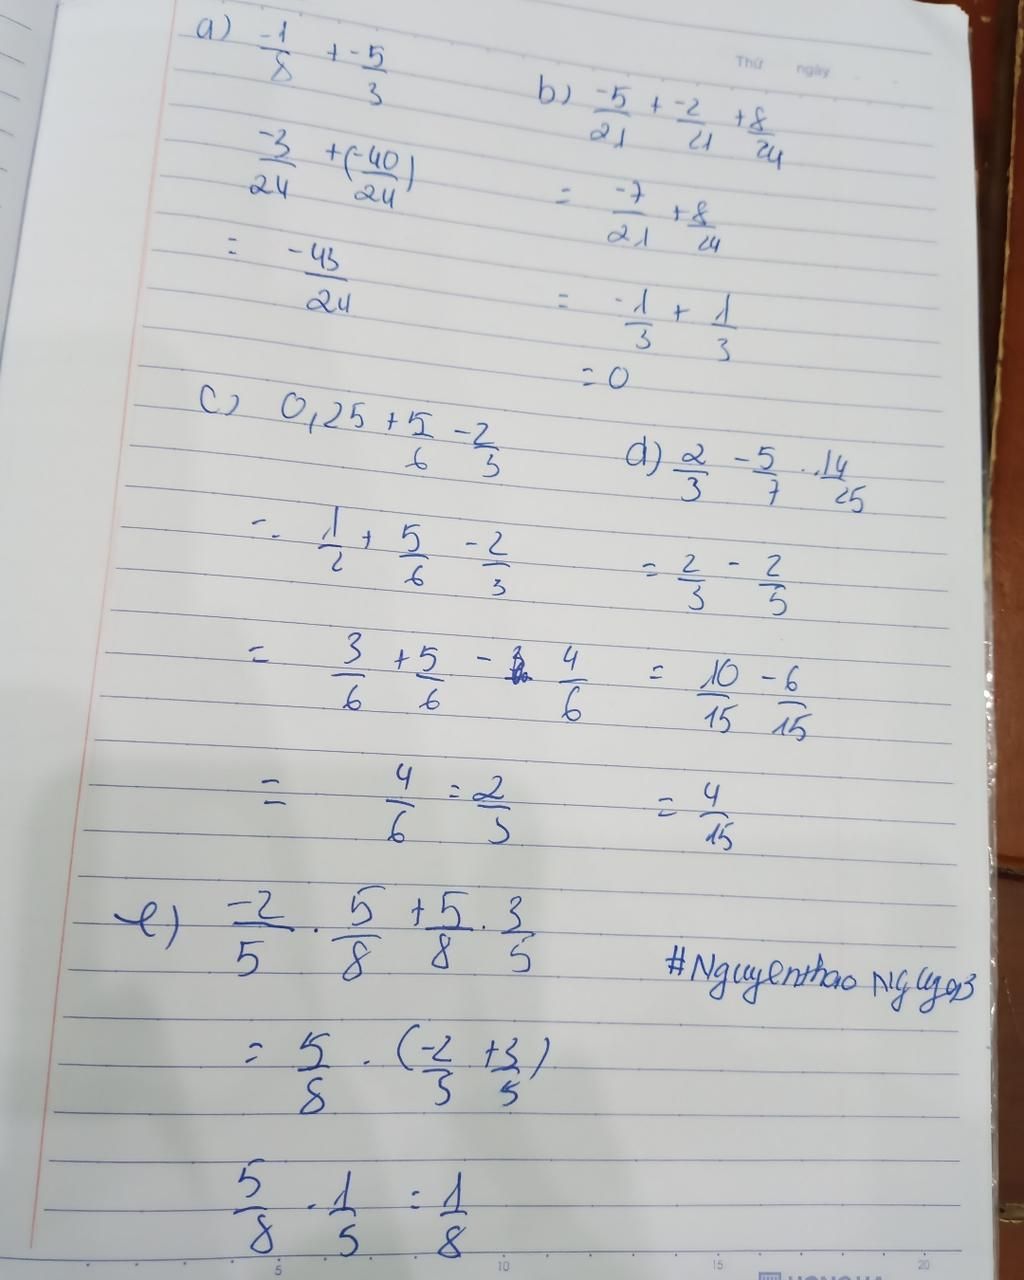 Thứ ngày
a) -1/8 + -5/3
-3/24 + (-40/24)
= -43/24
b) -5/21 + -2/21 + 8/24
= -7/21 + 8/24
= -1/3 + 1/3
= 0
c) 0,25 + 5/6 - 2/3
= 1/2 + 5/6 - 2/3
= 3/6 + 5/6 - 4/6
= 4/6 = 2/3
d) 2/3 - 5/7 . 14/25
= 2/3 - 2/5
= 10/15 - 6/15
= 4/15
e) -2/5 . 5/8 + 5/8 . 3/5
#Nguyenthao
= 5/8 . (-2/5 + 3/5)
5/8 . 1/5 = 1/8
5 10 15 20